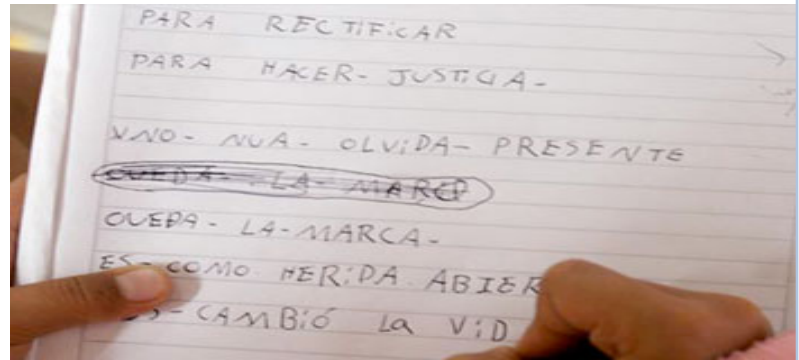 PARA RECTIFICAR
PARA HACER- JUSTICIA-
UNO- NUA- OLVIDA- PRESENTE
QUEDA- LA- MARCA-
ES- COMO HERIDA ABIER
CAMBIÓ La ViD